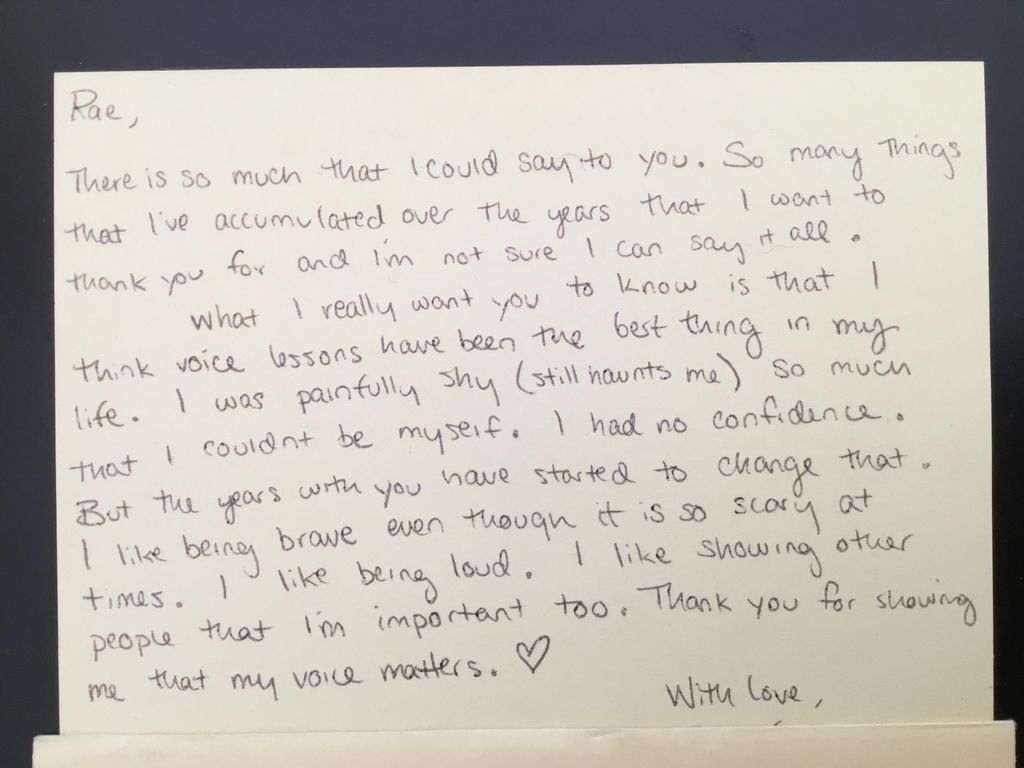 Rae,
There is so much that I could say to you. So many things
that I've accumulated over the years that I want to
thank you for and I'm not sure I can say it all.
What I really want you to know is that I
think voice lessons have been the best thing in my
life. I was painfully shy (still haunts me) so much
that I couldn't be myself. I had no confidence.
But the years with you have started to change that.
I like being brave even though it is so scary at
times. I like being loud. I like showing other
people that I'm important too. Thank you for showing
me that my voice matters. ♡
With love,